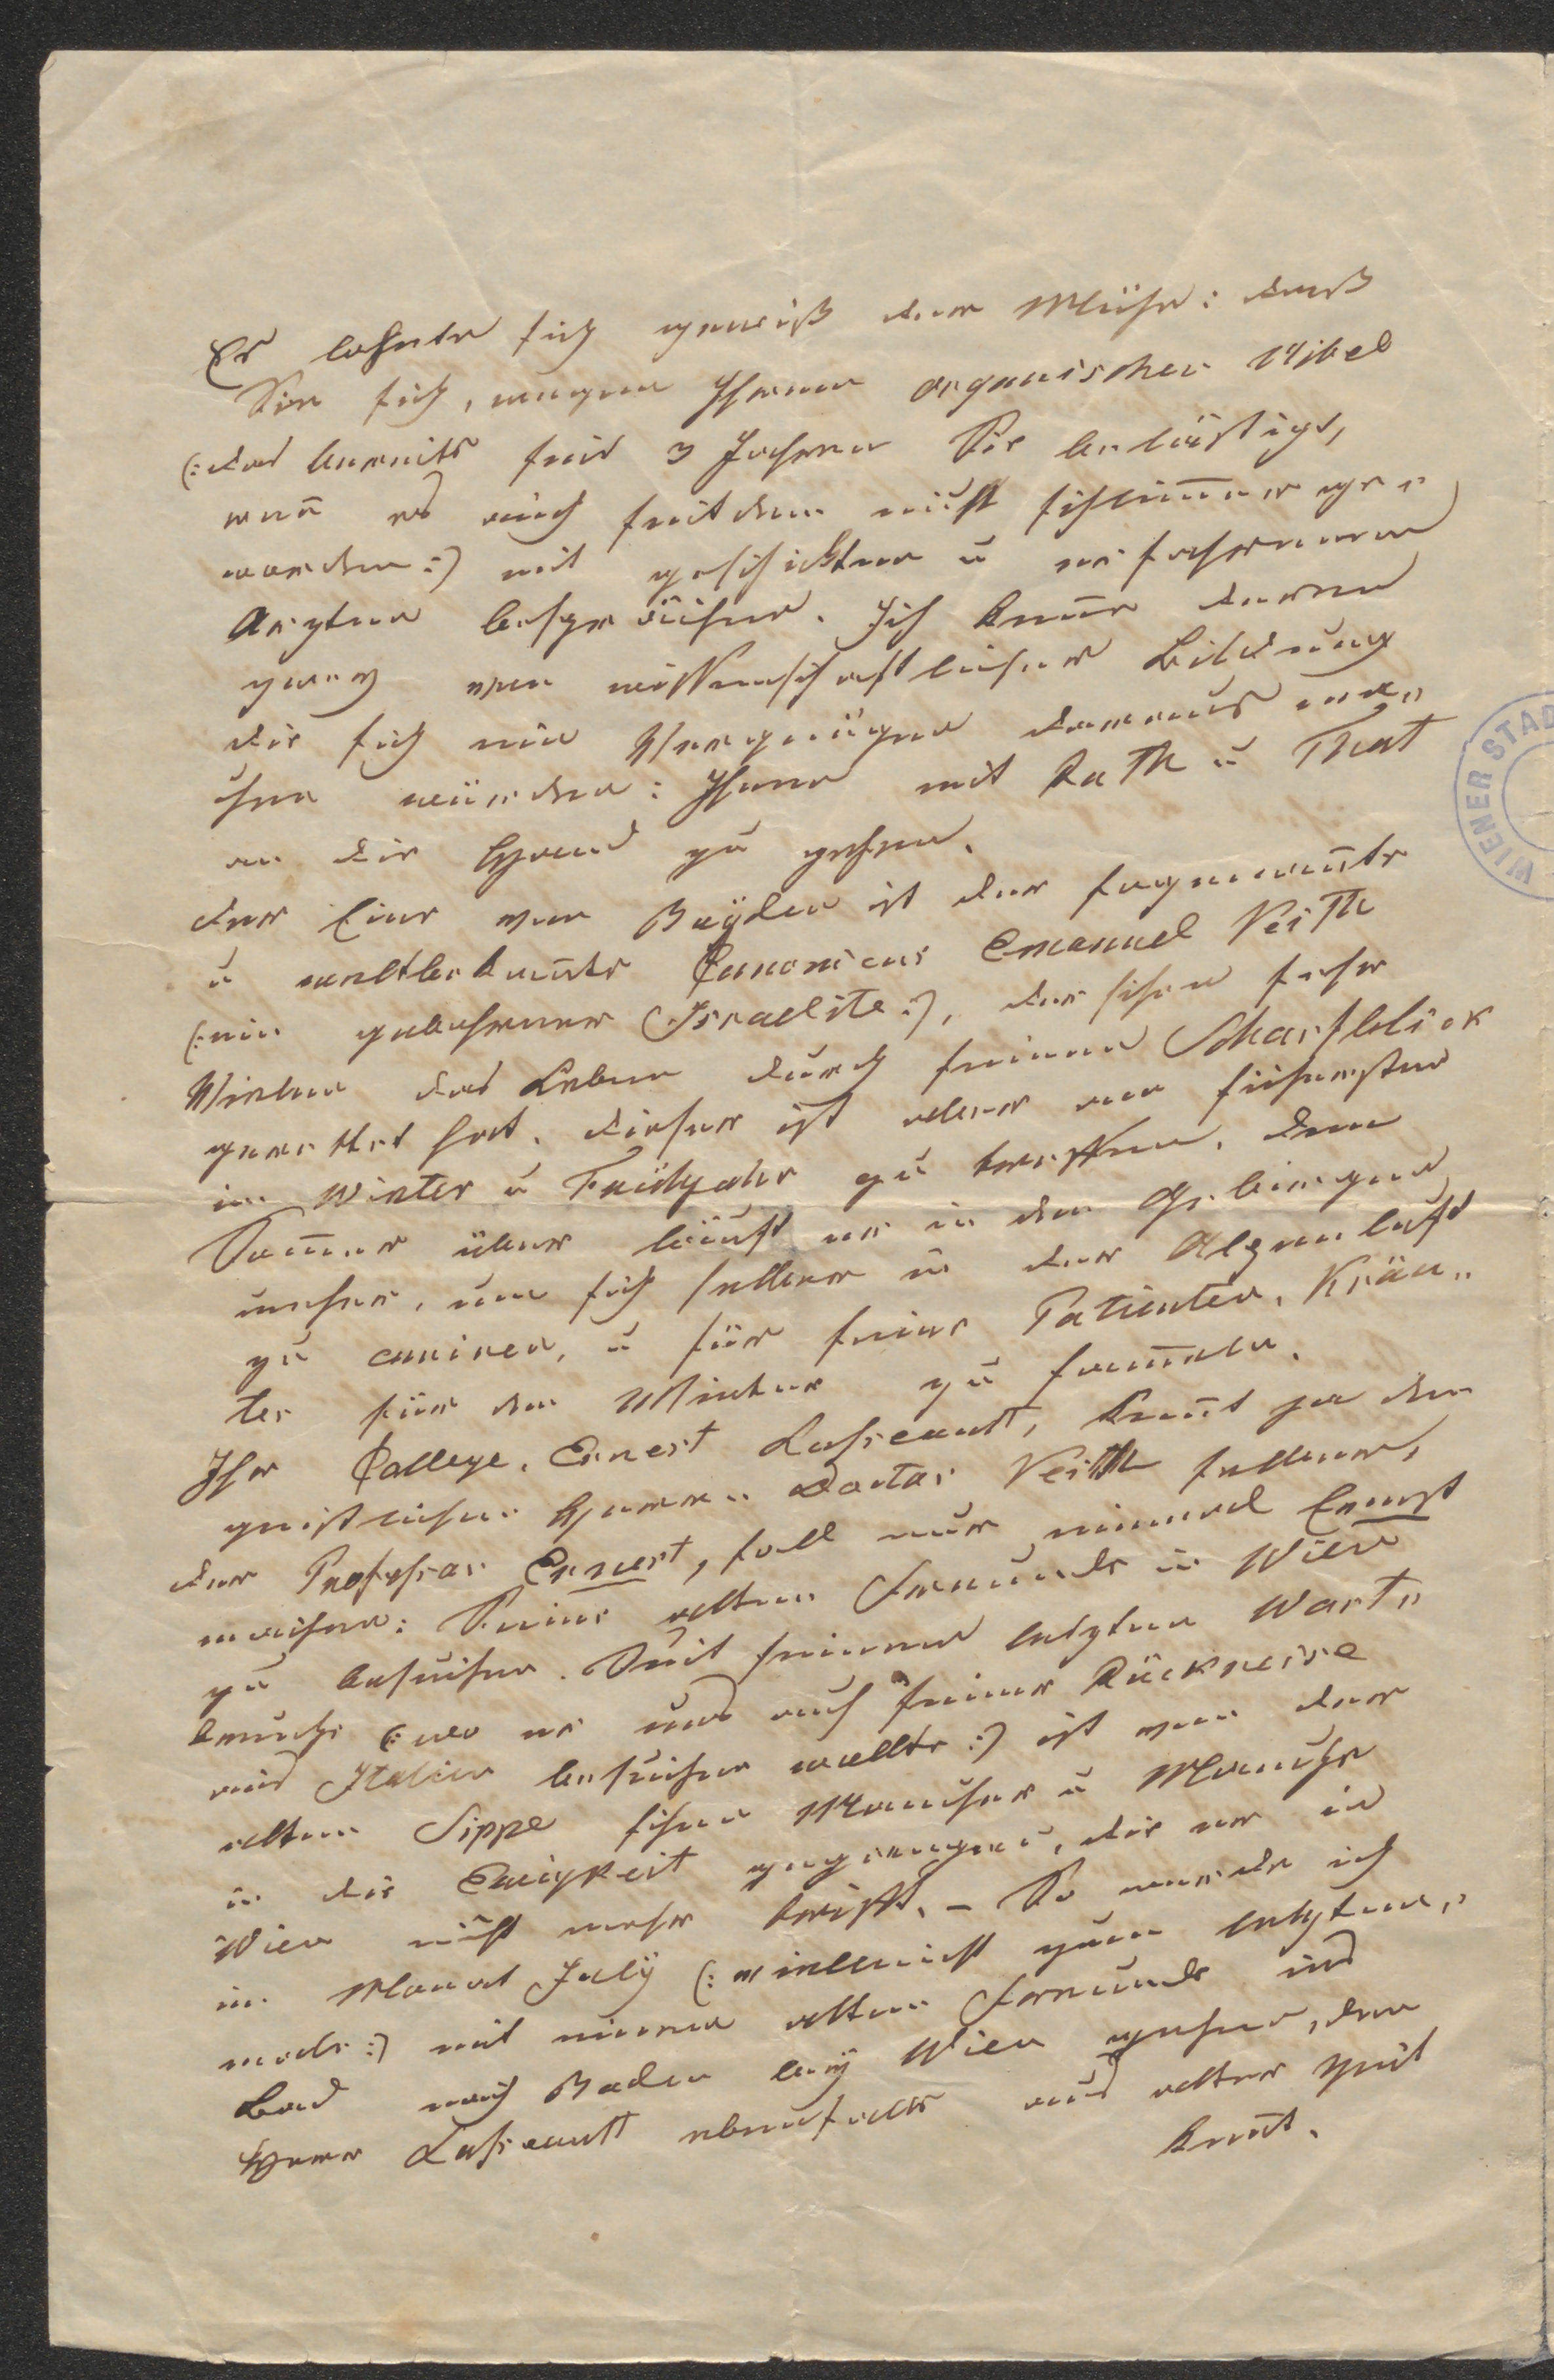 Es lohnte sich gewiß der Mühe: daß
Sie sich, wegen Ihrem organischen Uibel
(:das bereits seit 3 Jahren Sie belästigt,
weñ es auch seitdem nicht schlim̃er ge„
worden:) mit geschickten u erfahrenen
Aerzten besprächen. Ich keñe deren
zwey von wissenschaftlicher Bildung
die sich ein Vergnügen daraus ma„
chen würden: Ihnen mit Rath u That
an die Hand zu gehen.
der Eine von Beÿden ist der sogenañte
u weltbekañte Canonicus Emanuel Veith
(:ein geborener Israelite:), der schon sehr
Vielen das Leben durch seinen Scharfblick
gerettet hat. dieser ist aber am sichersten
im Winter u Frühjahr zu treffen, denn
Som̃er über läuft er in den Gebirgen
umher, um sich selber in der Alpenluft
zu curiren, u für seine Patienten, Kräu„
ter für den Winter zu sam̃eln.
Ihr College, Ernest Lasaulx, keñt ja den
geistlichen Herrn Doctor Veith selber,
der Professor Ernest, soll nur einmal Ernst
machen: Seine alten Freunde in Wien
zu besuchen. Seit seinem letzten Wort„
bruche (:wo er uns auf seiner Rückreise
aus Italien besuchen wollte:) ist von der
alten Sippe schon Mancher u Manche
in die Ewigkeit gegangen, die er in
Wien nicht mehr trifft. – So werde ich
im Monat July (:vielleicht zum letzten„
male:) mit einem alten Freunde ins
Bad nach Baden beÿ Wien gehen, den
Herr Lasaulx ebenfalls aus alter Zeit
keñt.
WIENER STAD